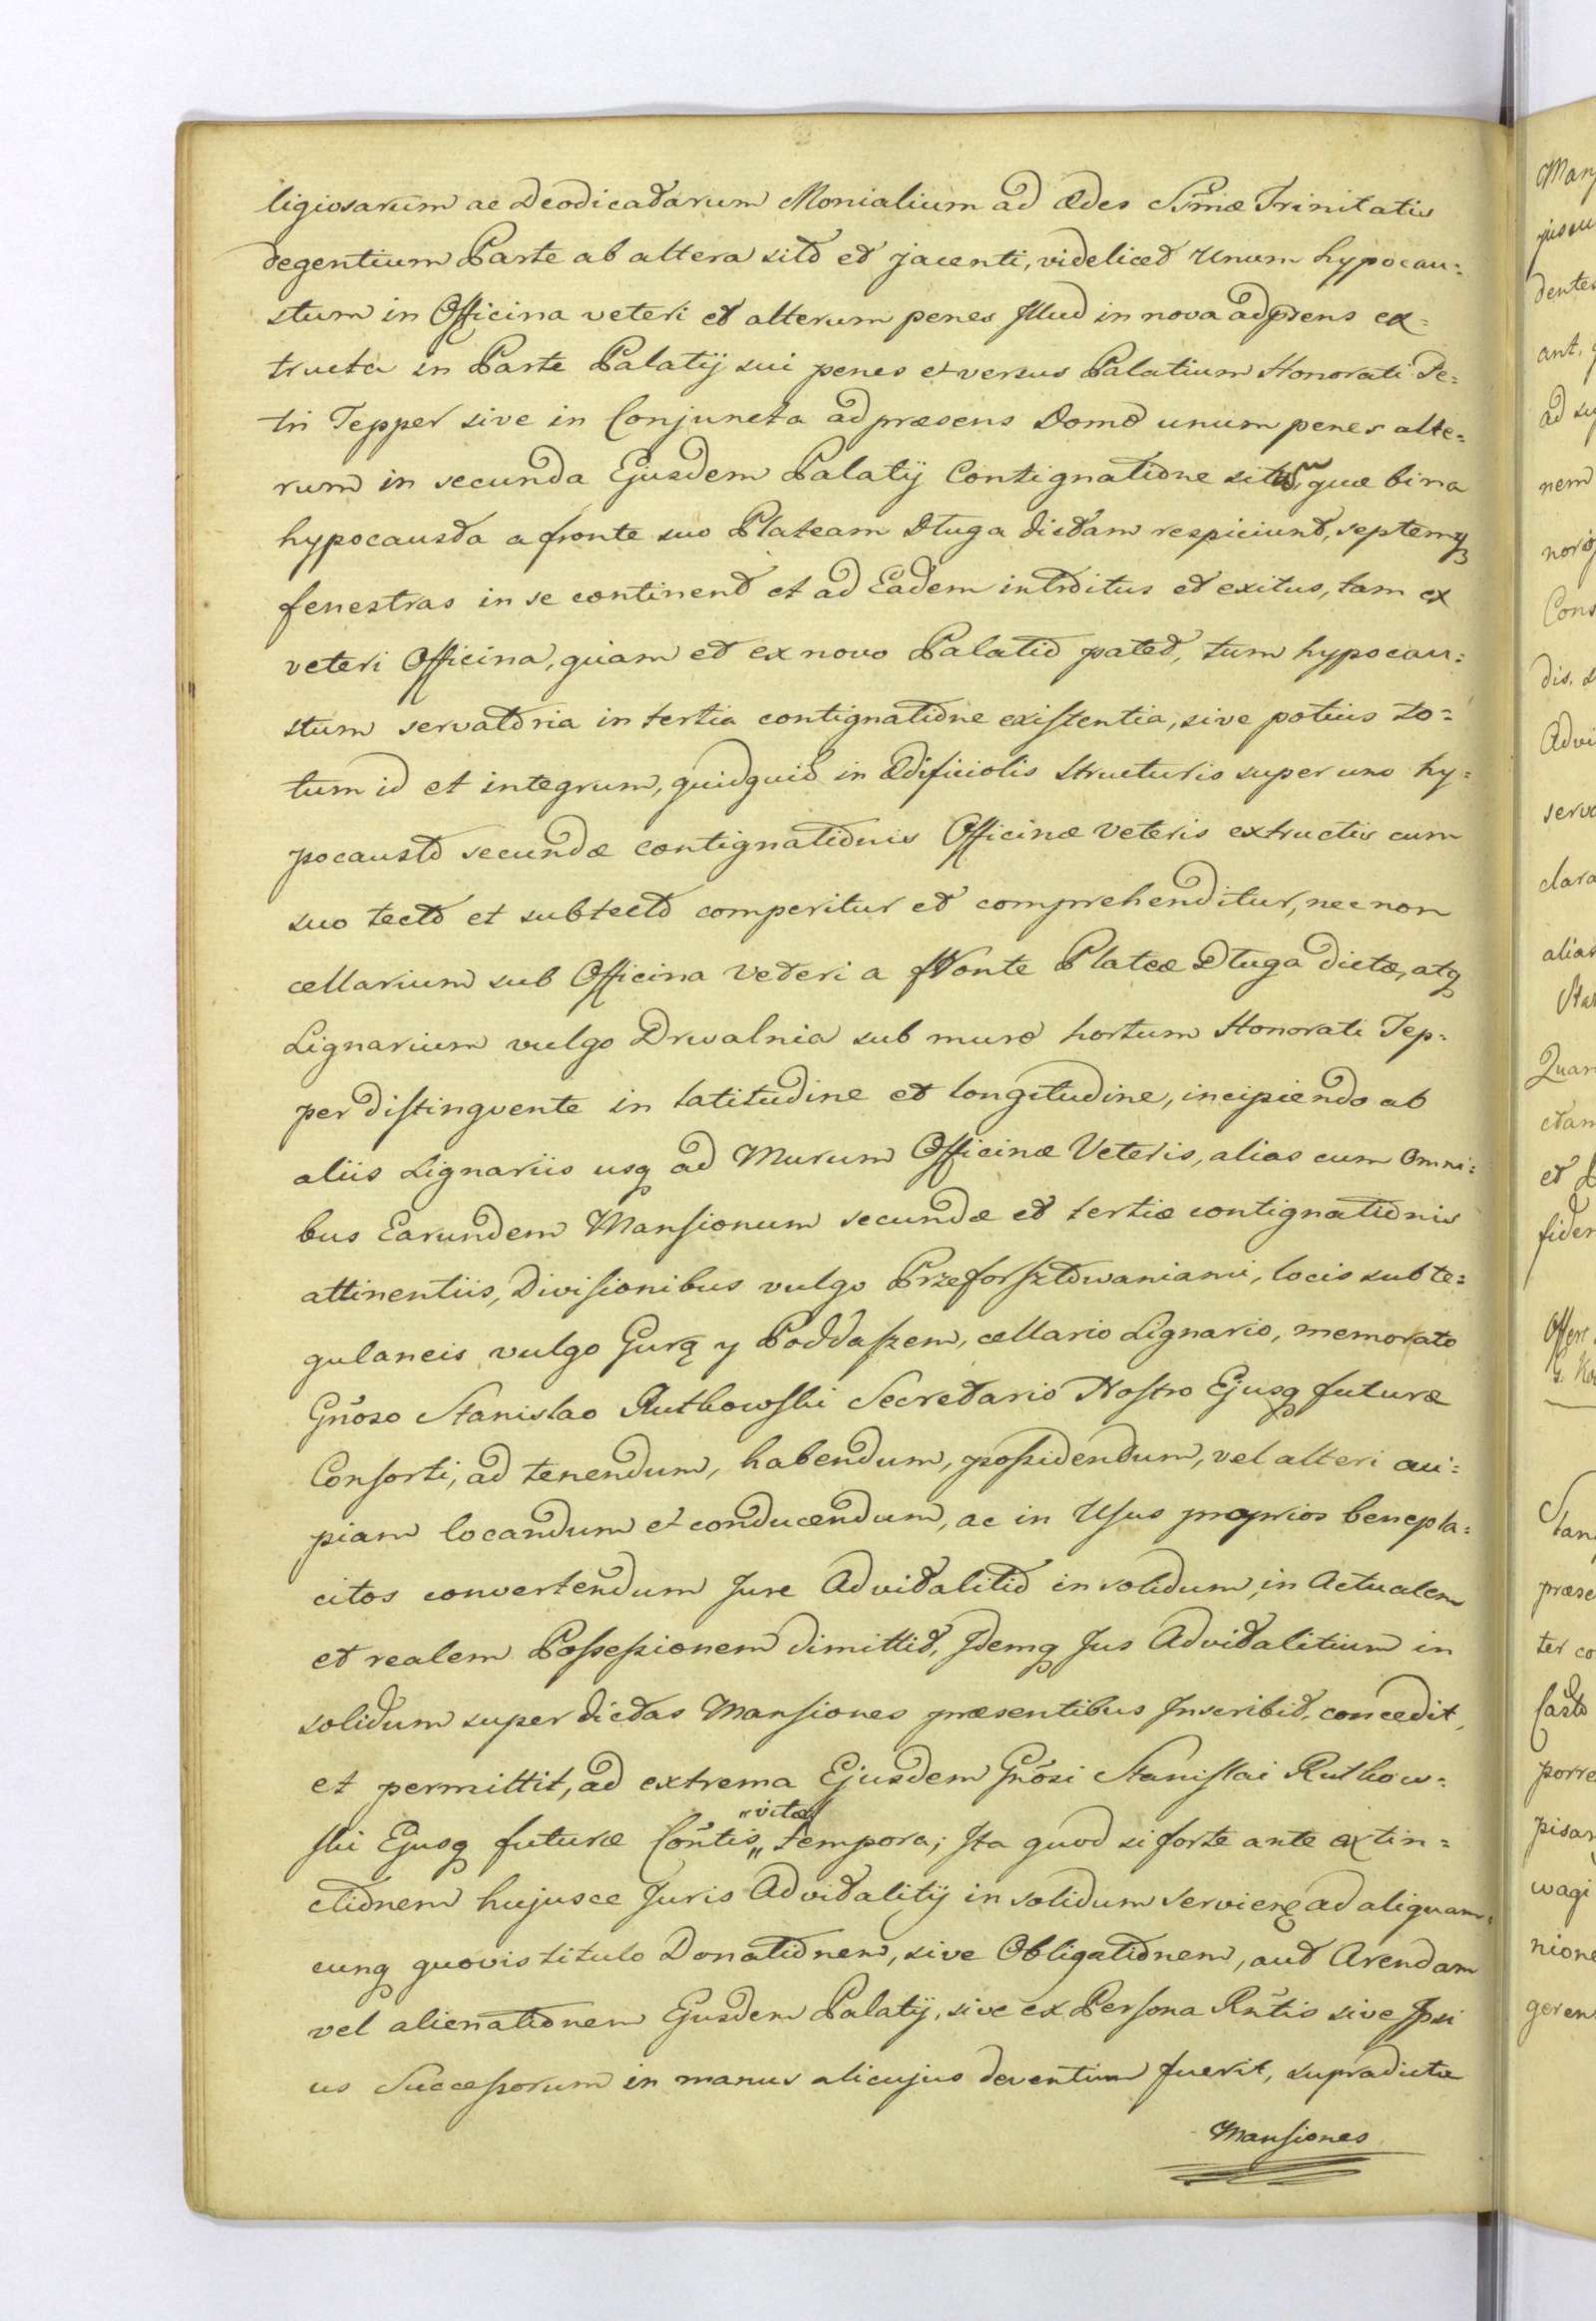 ligiosarum ac Deodicatarum Monialium ad Ædes Ss̃mæ Trinitatis
degentium Parte ab altera sito et jacenti, videlicet Unum hypocau=
stum in Officina veteri et alterum penes Illud in nova ad p̃sens ex=
tructa in Parte Palatij sui penes et versus Palatium Honorati Pe=
tri Tepper sive in Conjuncta ad præsens Domo unum penes alte=
rum in secunda Ejusdem Palatij Contignatione situm, quæ bina
hypocausta a fronte suo Plateam Długa dictam respiciunt, septemq
fenestras in se continent et ad Eadem introitus et exitus, tam ex
veteri Officina, quam et ex novo Palatio patet, tum hypocau=
stum servatoria in tertia contignatione existentia, sive potius to=
tum id et integrum, quidquid in Ædificiolis structuris super uno hy=
pocausto secundæ contignationis Officinæ Veteris extructis cum
suo tecto et subtecto comperitur et comprehenditur, nec non
cellarium sub Officina Veteri a fronte Plateæ Długa dictæ, atq
Lignarium vulgo Drwalnia sub muro hortum Honorati Tep=
per distinguente in latitudine et longitudine, incipiendo ab
aliis Lignariis usq ad Murum Officinæ Veteris, alias cum Omni=
bus Earundem Mansionum secundæ et tertiæ contignationis
attinentiis, Divisionibus vulgo Przeforsztowaniami, locis subte=
gulaneis vulgo Gurą y Poddaszem, cellario Lignario, memorato
Gnõso Stanislao Rutkowski Secretario Nostro Ejusq futuræ
Consorti, ad tenendum, habendum, possidendum, vel alteri cui=
piam locandum et conducendum, ac in Usus proprios benepla=
citos convertendum Jure Advitalitio in solidum, in Actualem
et realem Possessionem dimittit, Idemq Jus Advitalitium in
solidum super dictas Mansiones præsentibus Inscribit, concedit,
et permittit, ad extrema Ejusdem Gnõsi Stanislai Rutkow=
ski Ejusq futuræ Cõntis „vitæ„ tempora; Ita quod si forte ante extin=
ctionem hujusce Juris Advitalitij in solidum serviens ad aliquam=
cunq quovis titulo Donationem, sive Obligationem, aut Arendam
vel alienationem Ejusdem Palatij, sive ex Persona Rñtis sive Ipsi
us Successorum in manus alicujus deventum fuerit, supradictæ
Mansiones